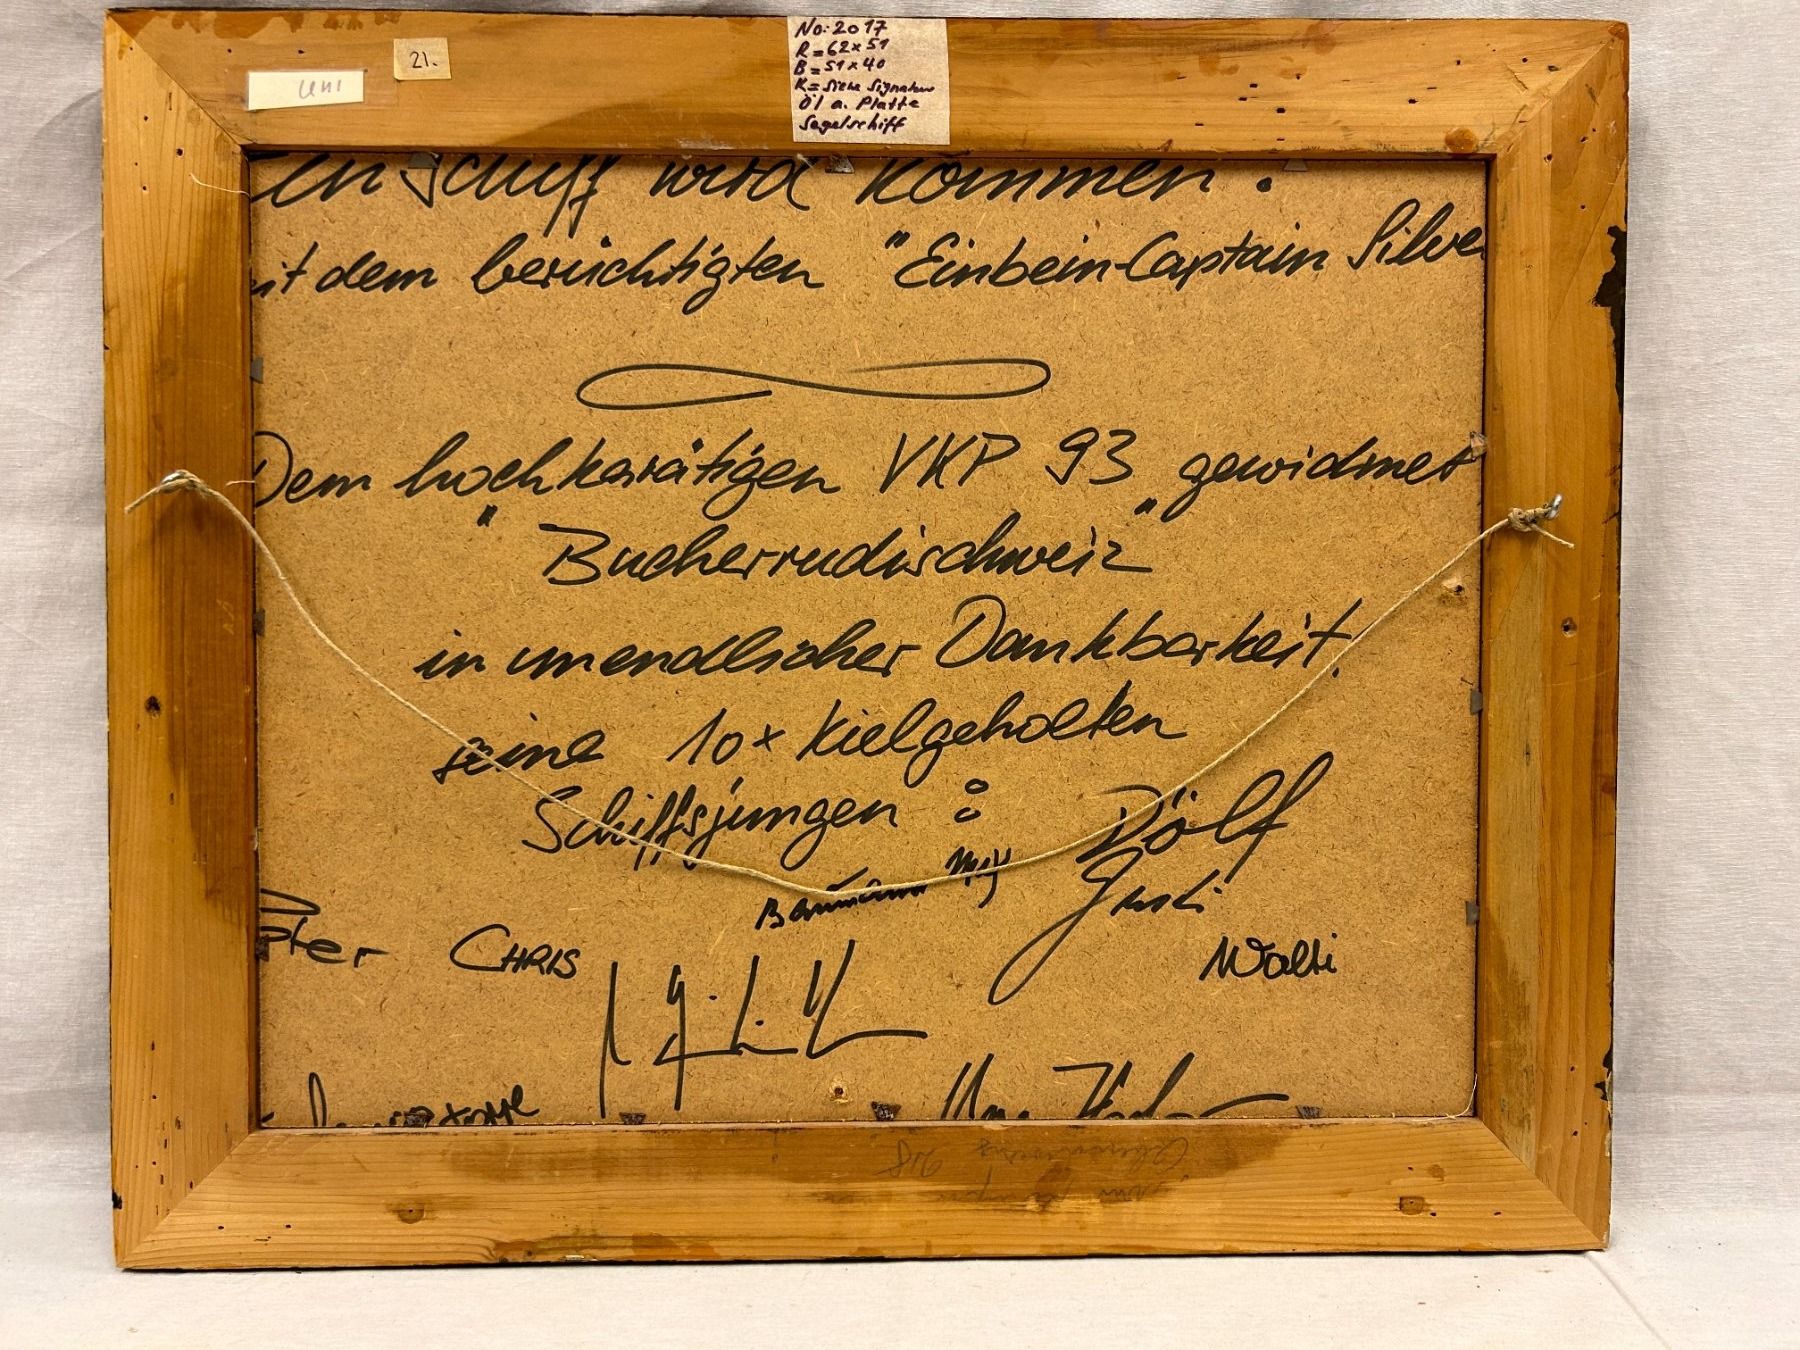 uni
21.
No: 2017
R = 62 x 51
B = 51 x 40
K = siehe Signatur
Öl a. Platte
Segelschiff
ein Schiff wird kommen.
it dem berüchtigten "Einbein-Captain Silve
Dem hochkarätigen VKP 93 gewidmet
"Bucherrudischweiz"
in unendlicher Dankbarkeit,
seine 10x kielgeholten
Schiffsjungen :
Dölf
Baumann
Peter CHRIS
Walti